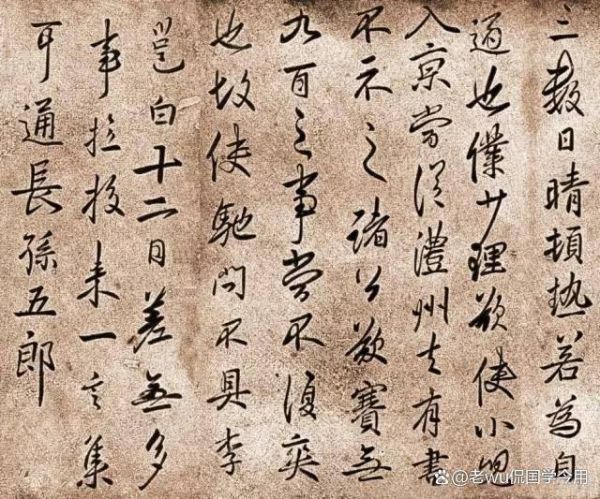 三數日晴頓熱若為自
適也僕少理欲使小
入京當從澧州去有書
不示之諸公欲賽無
九百之事當不復爽
也故使馳問不具李
邕白十二日差無多
事投來一言集
耳通長孫五郎
@老wu侃国学今用